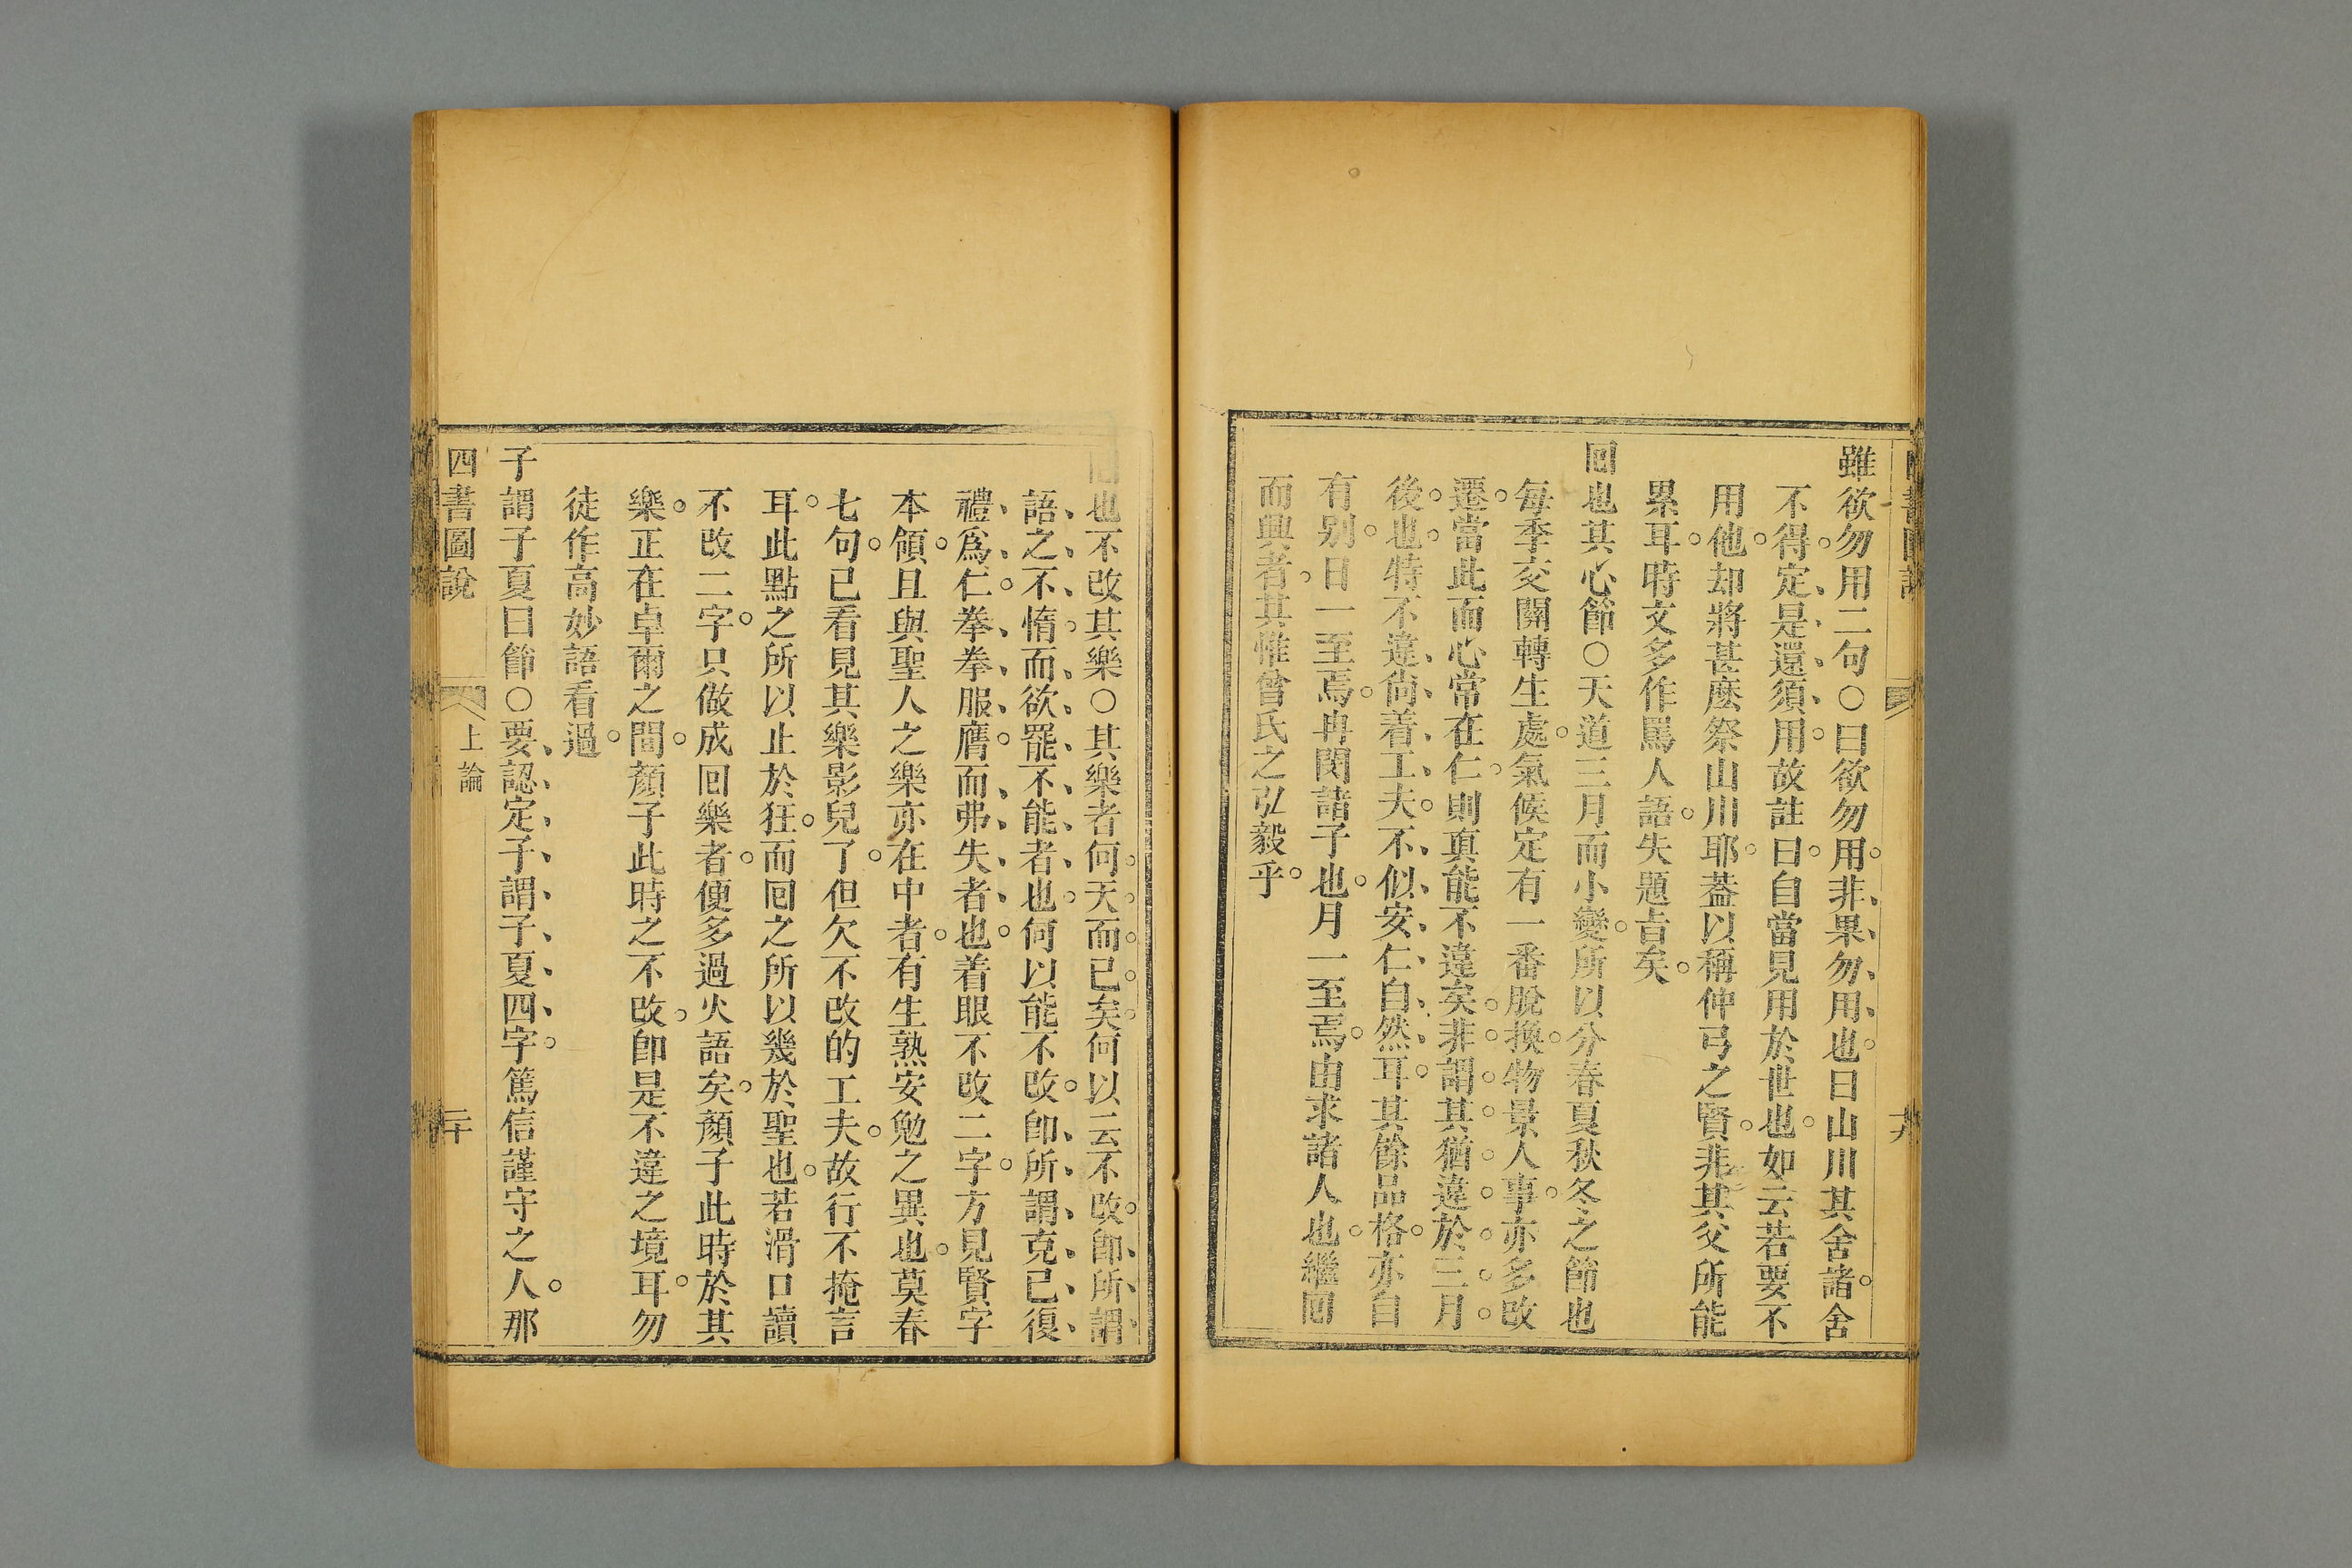 雖欲勿用二句○曰欲勿用非果勿用也曰山川其舍諸舍
不得定是還須用故註曰自當見用於世也如云若要不
用他却將甚麽祭山川耶葢以稱仲弓之賢非其父所能
累耳時文多作罵人語失題吉矣
回也其心節○天道三月而小變所以分春夏秋冬之節也
每季交關轉生處氣候定有一番脫換物景人事亦多改
遷當此而心常在仁則真能不違矣非謂其猶違於三月
後也特不違尙着工夫不似安仁自然耳其餘品格亦自
有别日一至焉冉閔諸子也月一至焉由求諸人也繼回
而興者其惟曾氏之弘毅乎
回也不改其樂○其樂者何天而已矣何以云不改卽所謂
語之不惰而欲罷不能者也何以能不改卽所謂克已復
禮爲仁拳拳服膺而弗失者也着眼不改二字方見賢字
本領且與聖人之樂亦在中者有生熟安勉之異也莫春
七句已看見其樂影兒了但欠不改的工夫故行不掩言
耳此點之所以止於狂而回之所以幾於聖也若滑口讀
不改二字只做成回樂者便多過火語矣顏子此時於其
樂正在卓爾之間顏子此時之不改卽是不違之境耳勿
徒作高妙語看過
子謂子夏曰節○要認定子謂子夏四字篤信謹守之人那
四書圖說
上論
二十